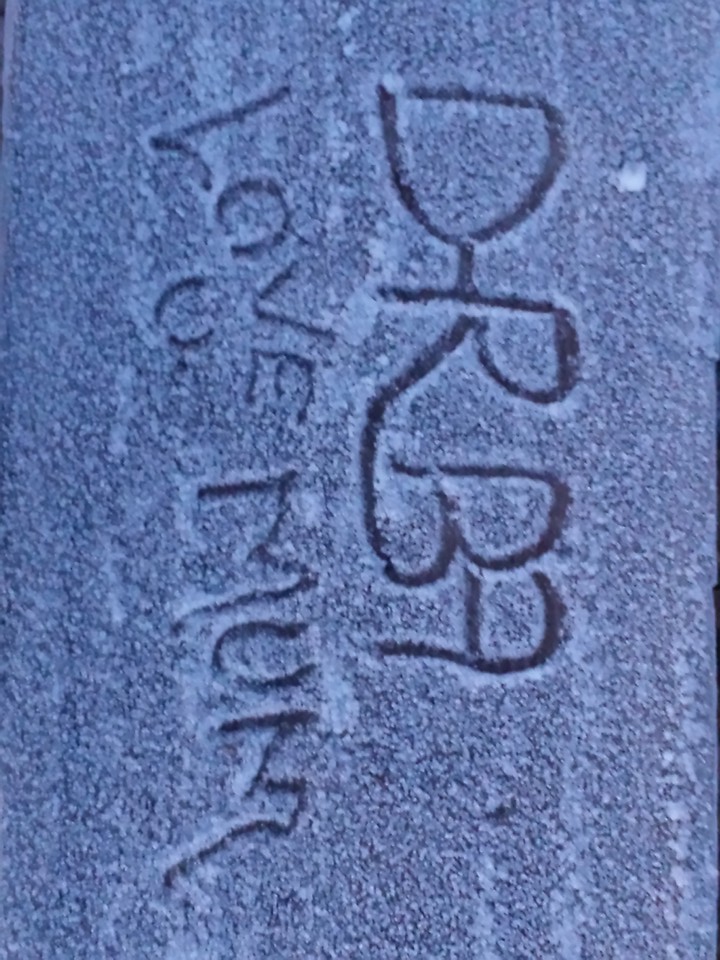 D-RBA
LOVE MUM
U